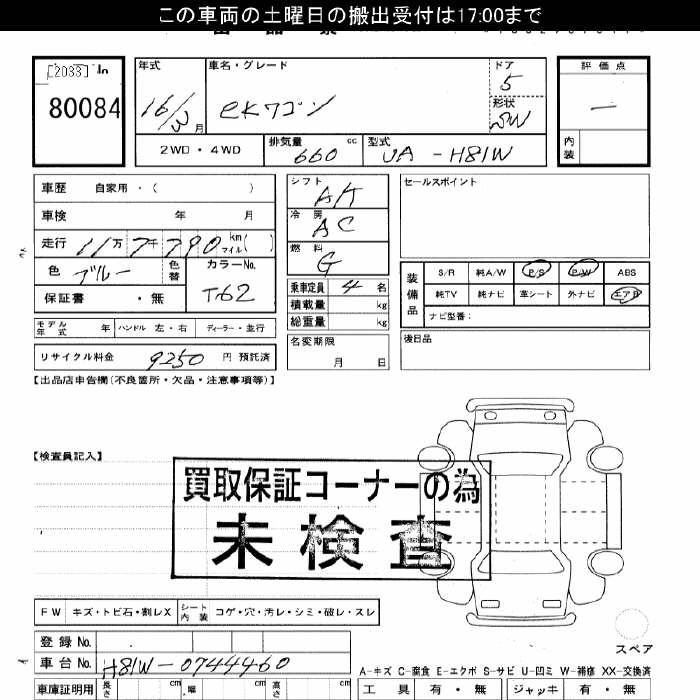 この車両の土曜日の搬出受付は17:00まで
[2033]
80084
年式 車名・グレード ドア 評価点
16/3月 eKワゴン 5 —
形状 SW
2WD・4WD 排気量 660 cc 型式 UA-H81W 内装
車歴 自家用・( )
車検 年 月
走行 11万7千790 km マイル( )
色 ブルー 色替 カラーNo. T62
保証書 ・無
モデル年式 年 ハンドル 左・右 ディーラー・並行
リサイクル料金 9250 円 預託済
シフト AT
冷房 AC
燃料 G
乗車定員 4 名
積載量 kg
総重量 kg
名変期限 月 日
セールスポイント
装備品
S/R 純A/W P/S P/W ABS
純TV 純ナビ 革シート 外ナビ エアB
ナビ型番:
後日品
【出品店申告欄(不良箇所・欠品・注意事項等)】
【検査員記入】
買取保証コーナーの為
未検査
FW キズ・トビ石・割レX シート内装 コゲ・穴・汚レ・シミ・破レ・スレ
スペア
登録No.
車台No. H81W-0744460
A-キズ C-腐食 E-エクボ S-サビ U-凹ミ W-補修 XX-交換済
車庫証明用 長さ cm 幅 cm 高さ cm 工具 有・無 ジャッキ 有・無